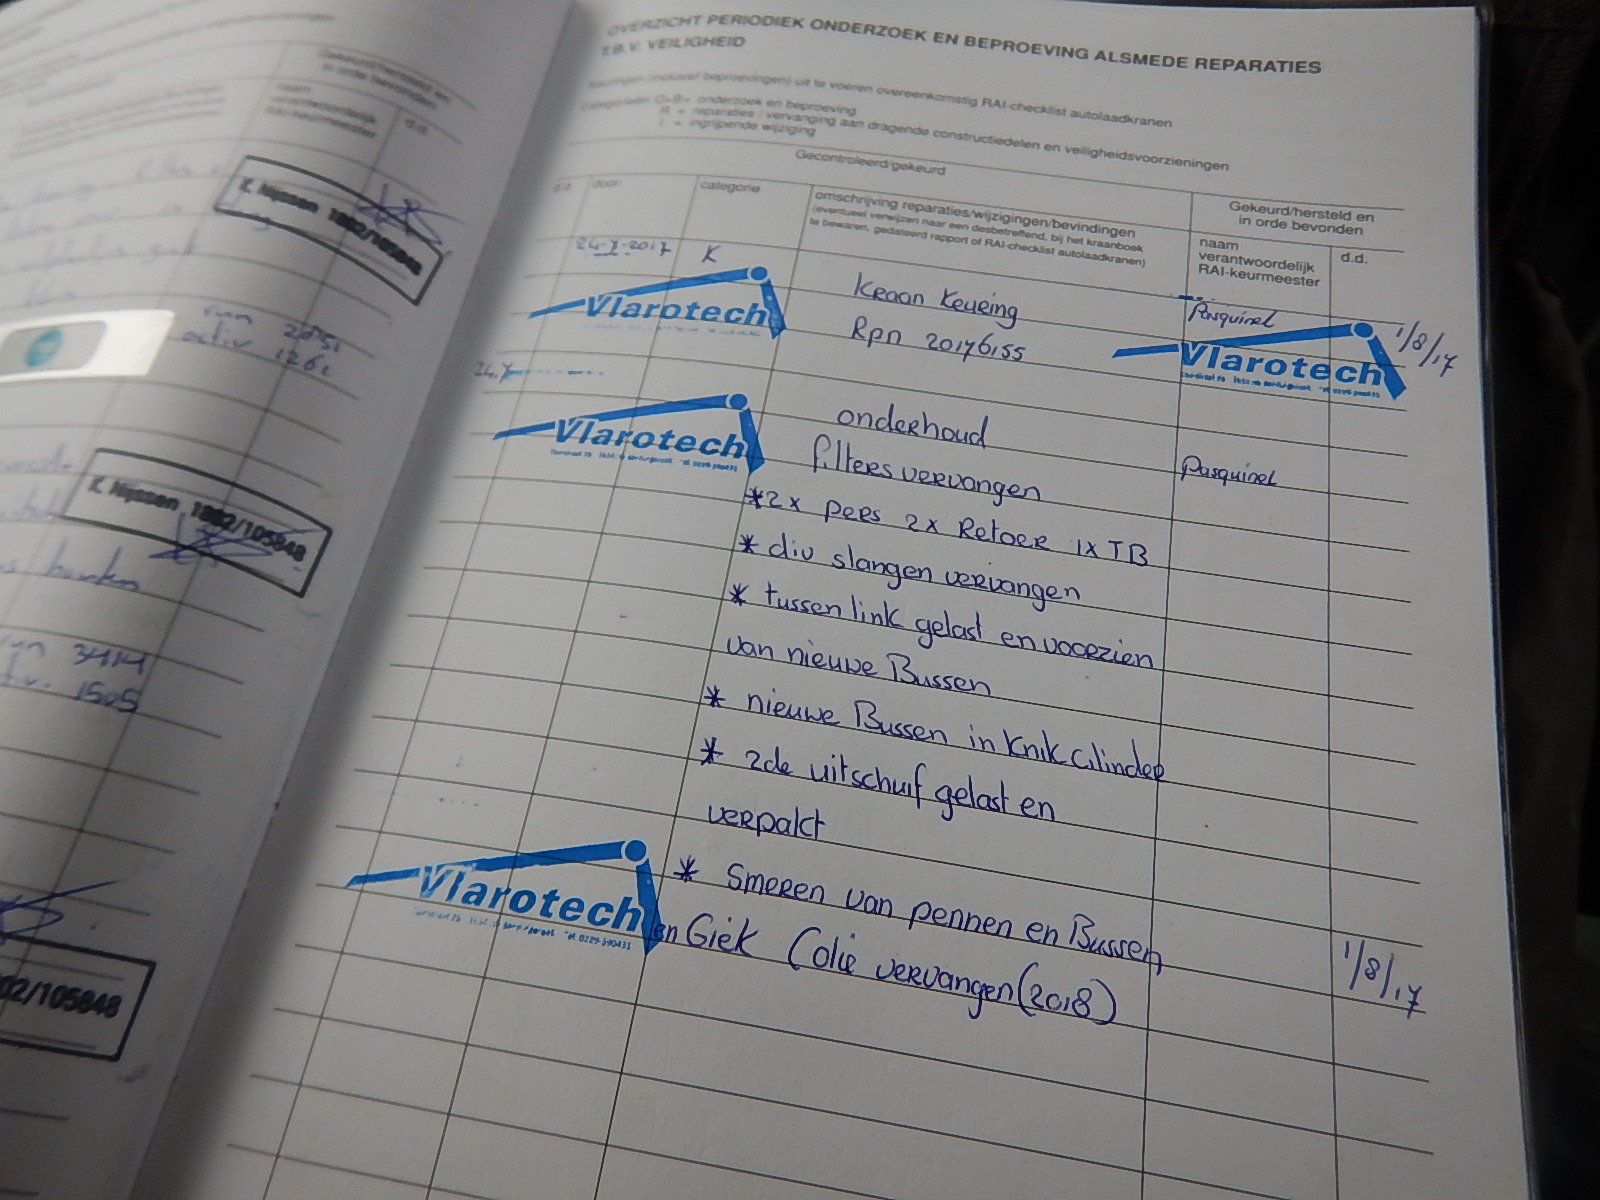 in orde bevonden
naam
verantwoordelijk
RAI-keurmeester
d.d.
K. Nijssen 1802/105848
run 2051
activ 1261
K. Nijssen 1802/105848
banken
3414
1505
02/105848
OVERZICHT PERIODIEK ONDERZOEK EN BEPROEVING ALSMEDE REPARATIES
T.B.V. VEILIGHEID
Keuringen (inclusief beproevingen) uit te voeren overeenkomstig RAI-checklist autolaadkranen
Categorieën: O+B= onderzoek en beproeving
R = reparaties / vervanging aan dragende constructiedelen en veiligheidsvoorzieningen
I = ingrijpende wijziging
Gecontroleerd/gekeurd
Gekeurd/hersteld en
in orde bevonden
d.d.
door:
categorie
omschrijving reparaties/wijzigingen/bevindingen
(eventueel verwijzen naar een desbetreffend, bij het kraanboek
te bewaren, gedateerd rapport of RAI-checklist autolaadkranen)
naam
verantwoordelijk
RAI-keurmeester
d.d.
24-7-2017 K
Vlarotech
Kraan Keuring
Rpn 20176155
Pasquinel
Vlarotech
1/8/17
24.7
Vlarotech
onderhoud
filters vervangen
Pasquinel
*2x pers 2x Retoer 1x TB
* div slangen vervangen
* tussen link gelast en voorzien
van nieuwe Bussen
* nieuwe Bussen in knik cilinder
* 2de uitschuif gelast en
verpakt
Vlarotech
0229-590431
* smeren van pennen en Bussen
en Giek (olie vervangen (2018)
1/8/17